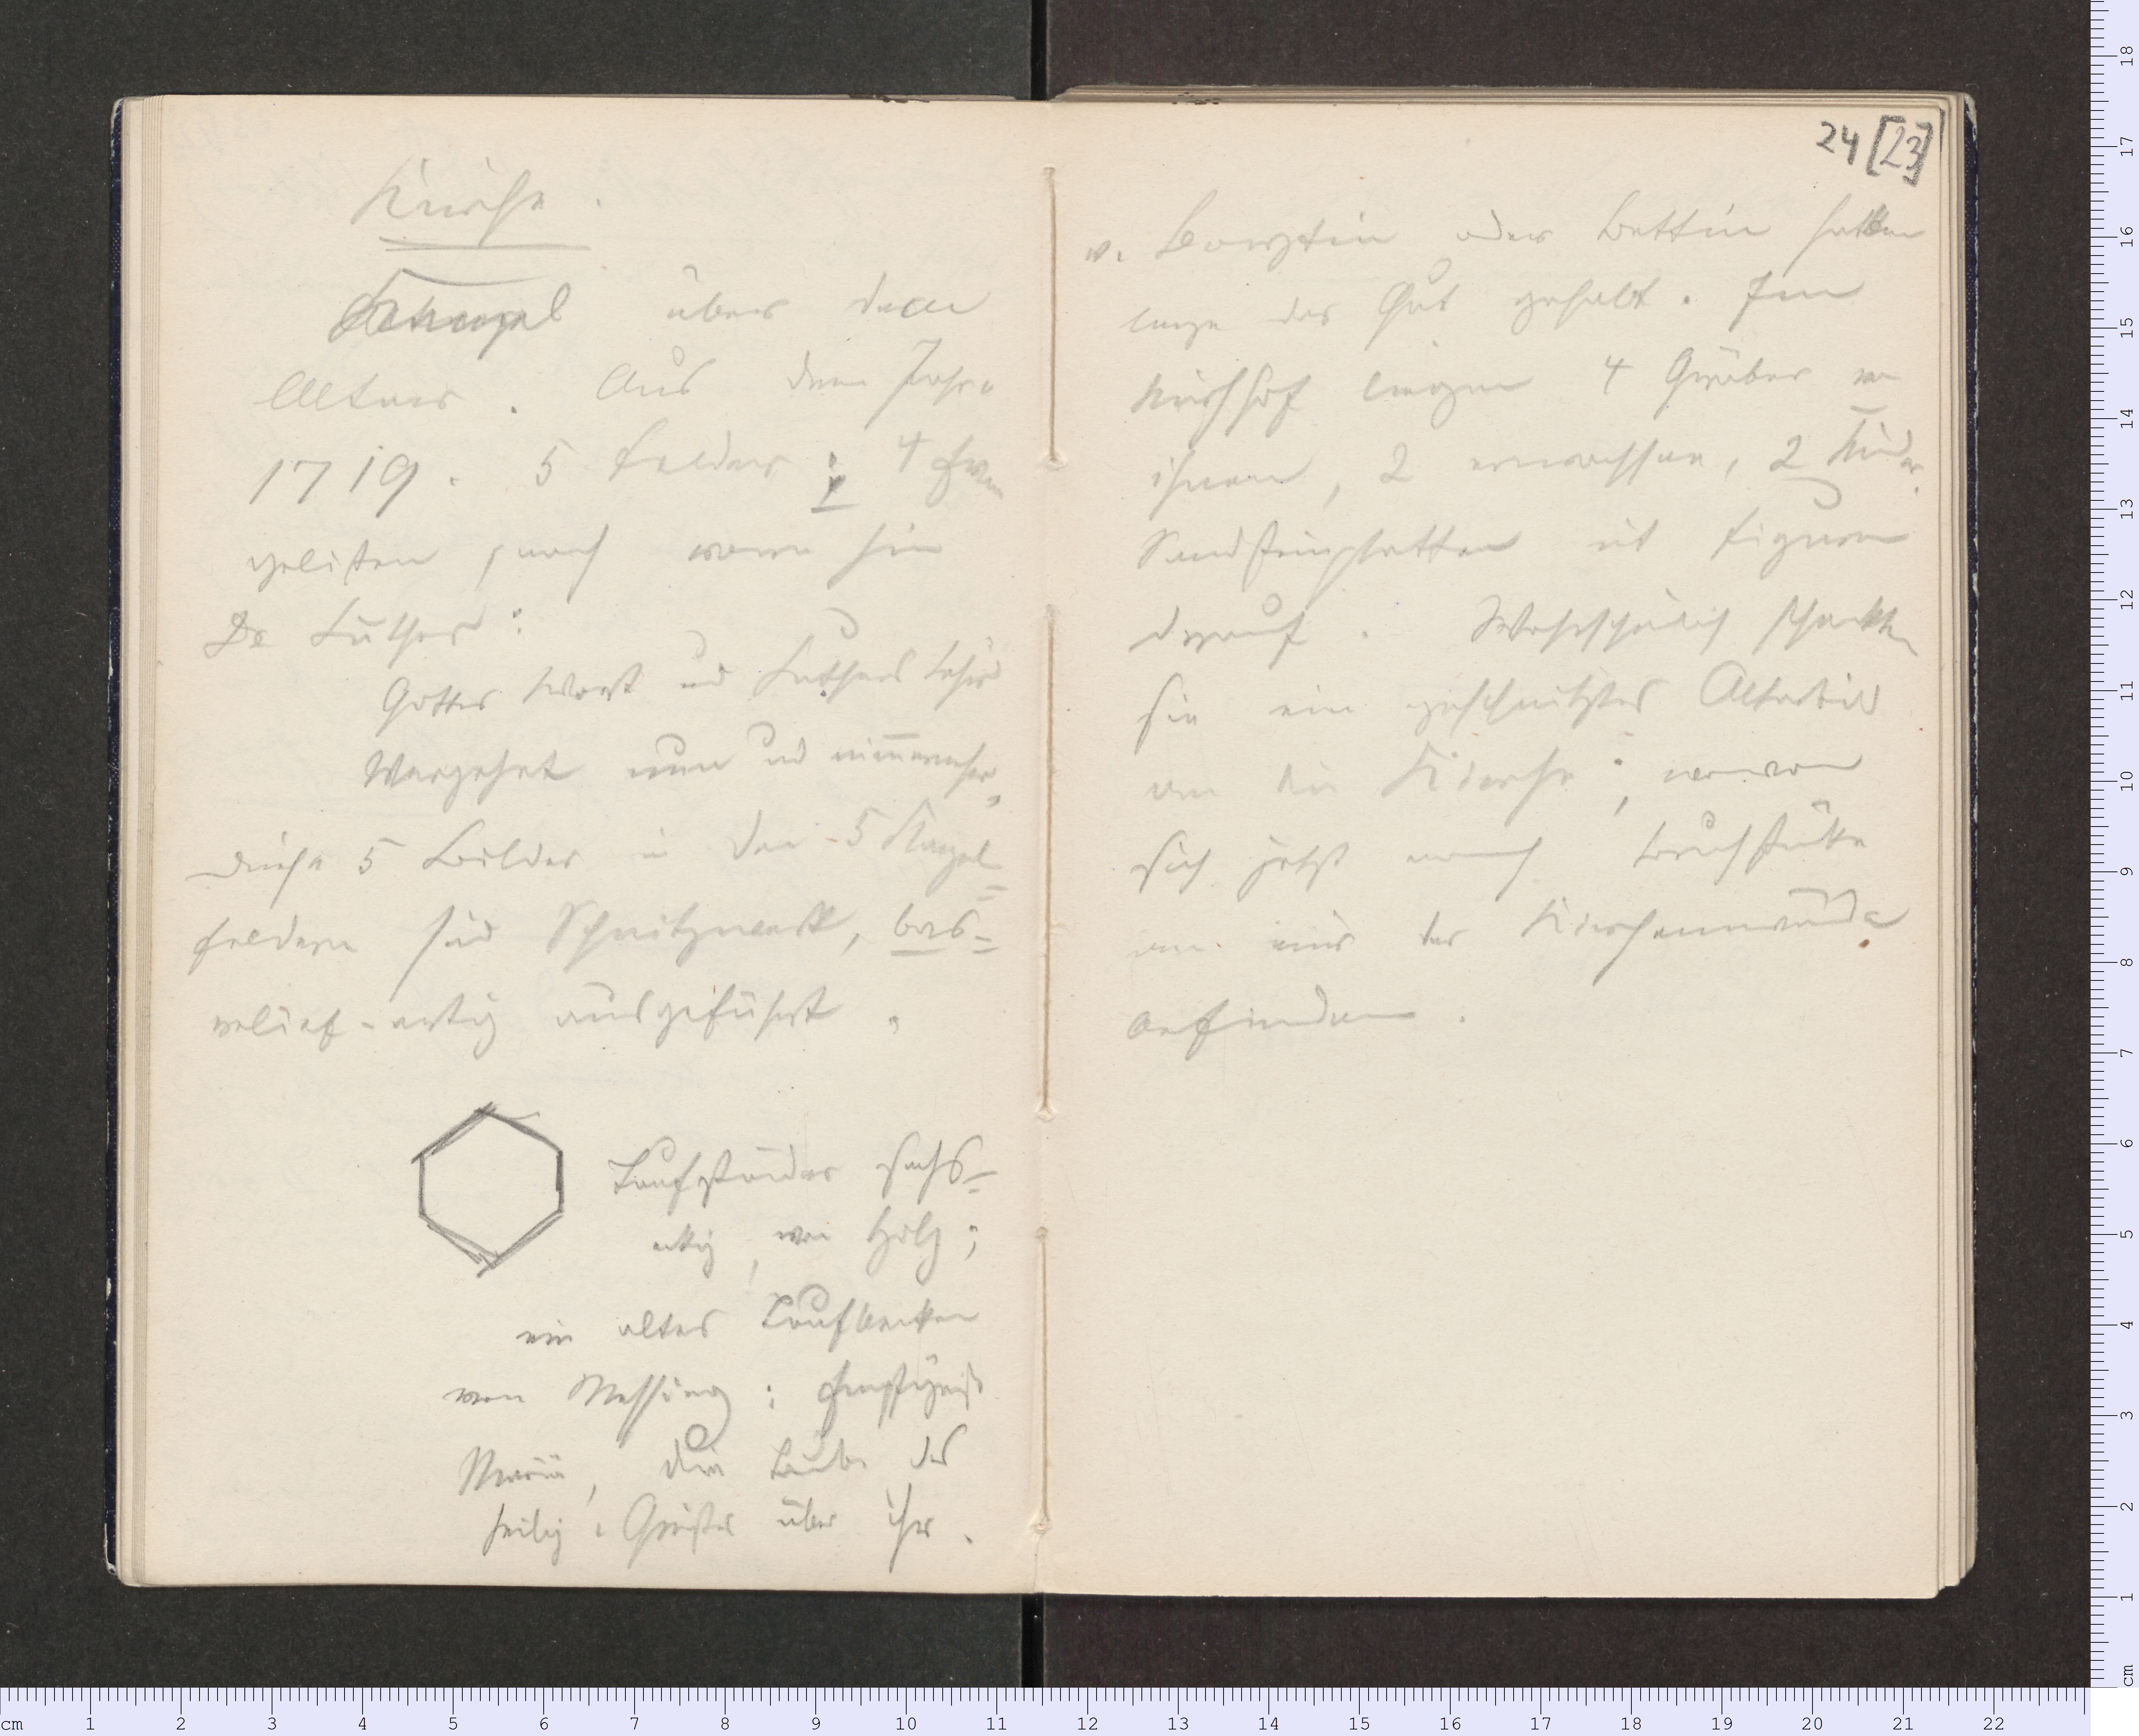 Kirche.
Kanzel über dem
Altar. Aus dem Jahre
1719. 5 Felder: 4 Evan
gelisten, nach vorn hin
Dr Luther:
Gottes Wort und Luthers Lehr
Vergehet nun und nimmermehr.
Diese 5 Bilder in den 5 Kanzel=
feldern sind Schnitzwerk, bas=
relief-artig ausgeführt.
Taufständer sechs=
eckig, von Holz;
ein altes Taufbecken
von Messing: Empfängniß
Mariä, die Taube des
heilig. Geistes über ihr.
24 [23]
v. oder Bettin hatten
lange das Gut gehabt. Im
Kirchhof liegen 4 Gräber von
ihnen, 2 erwachsene, 2 Kinder.
Sandsteinplatten mit Figuren
drauf. Wahrscheinlich schenkten
sie ein geschnitztes Altarbild
an die Kirche; wovon
sich jetzt noch Bruchstücke
an eine der Kirchenwände
befinden.